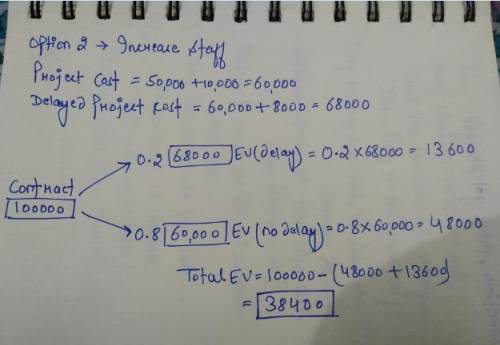 Option 2 → Increase Staff
Project Cost = 50,000 + 10,000 = 60,000
Delayed Project Cost = 60,000 + 8000 = 68000
0.2 68000 EV(delay) = 0.2 × 68000 = 13600
Contract
100000
0.8 60,000 EV (no delay) = 0.8 × 60,000 = 48000
Total EV = 100000 - (48000 + 13600)
= 38400